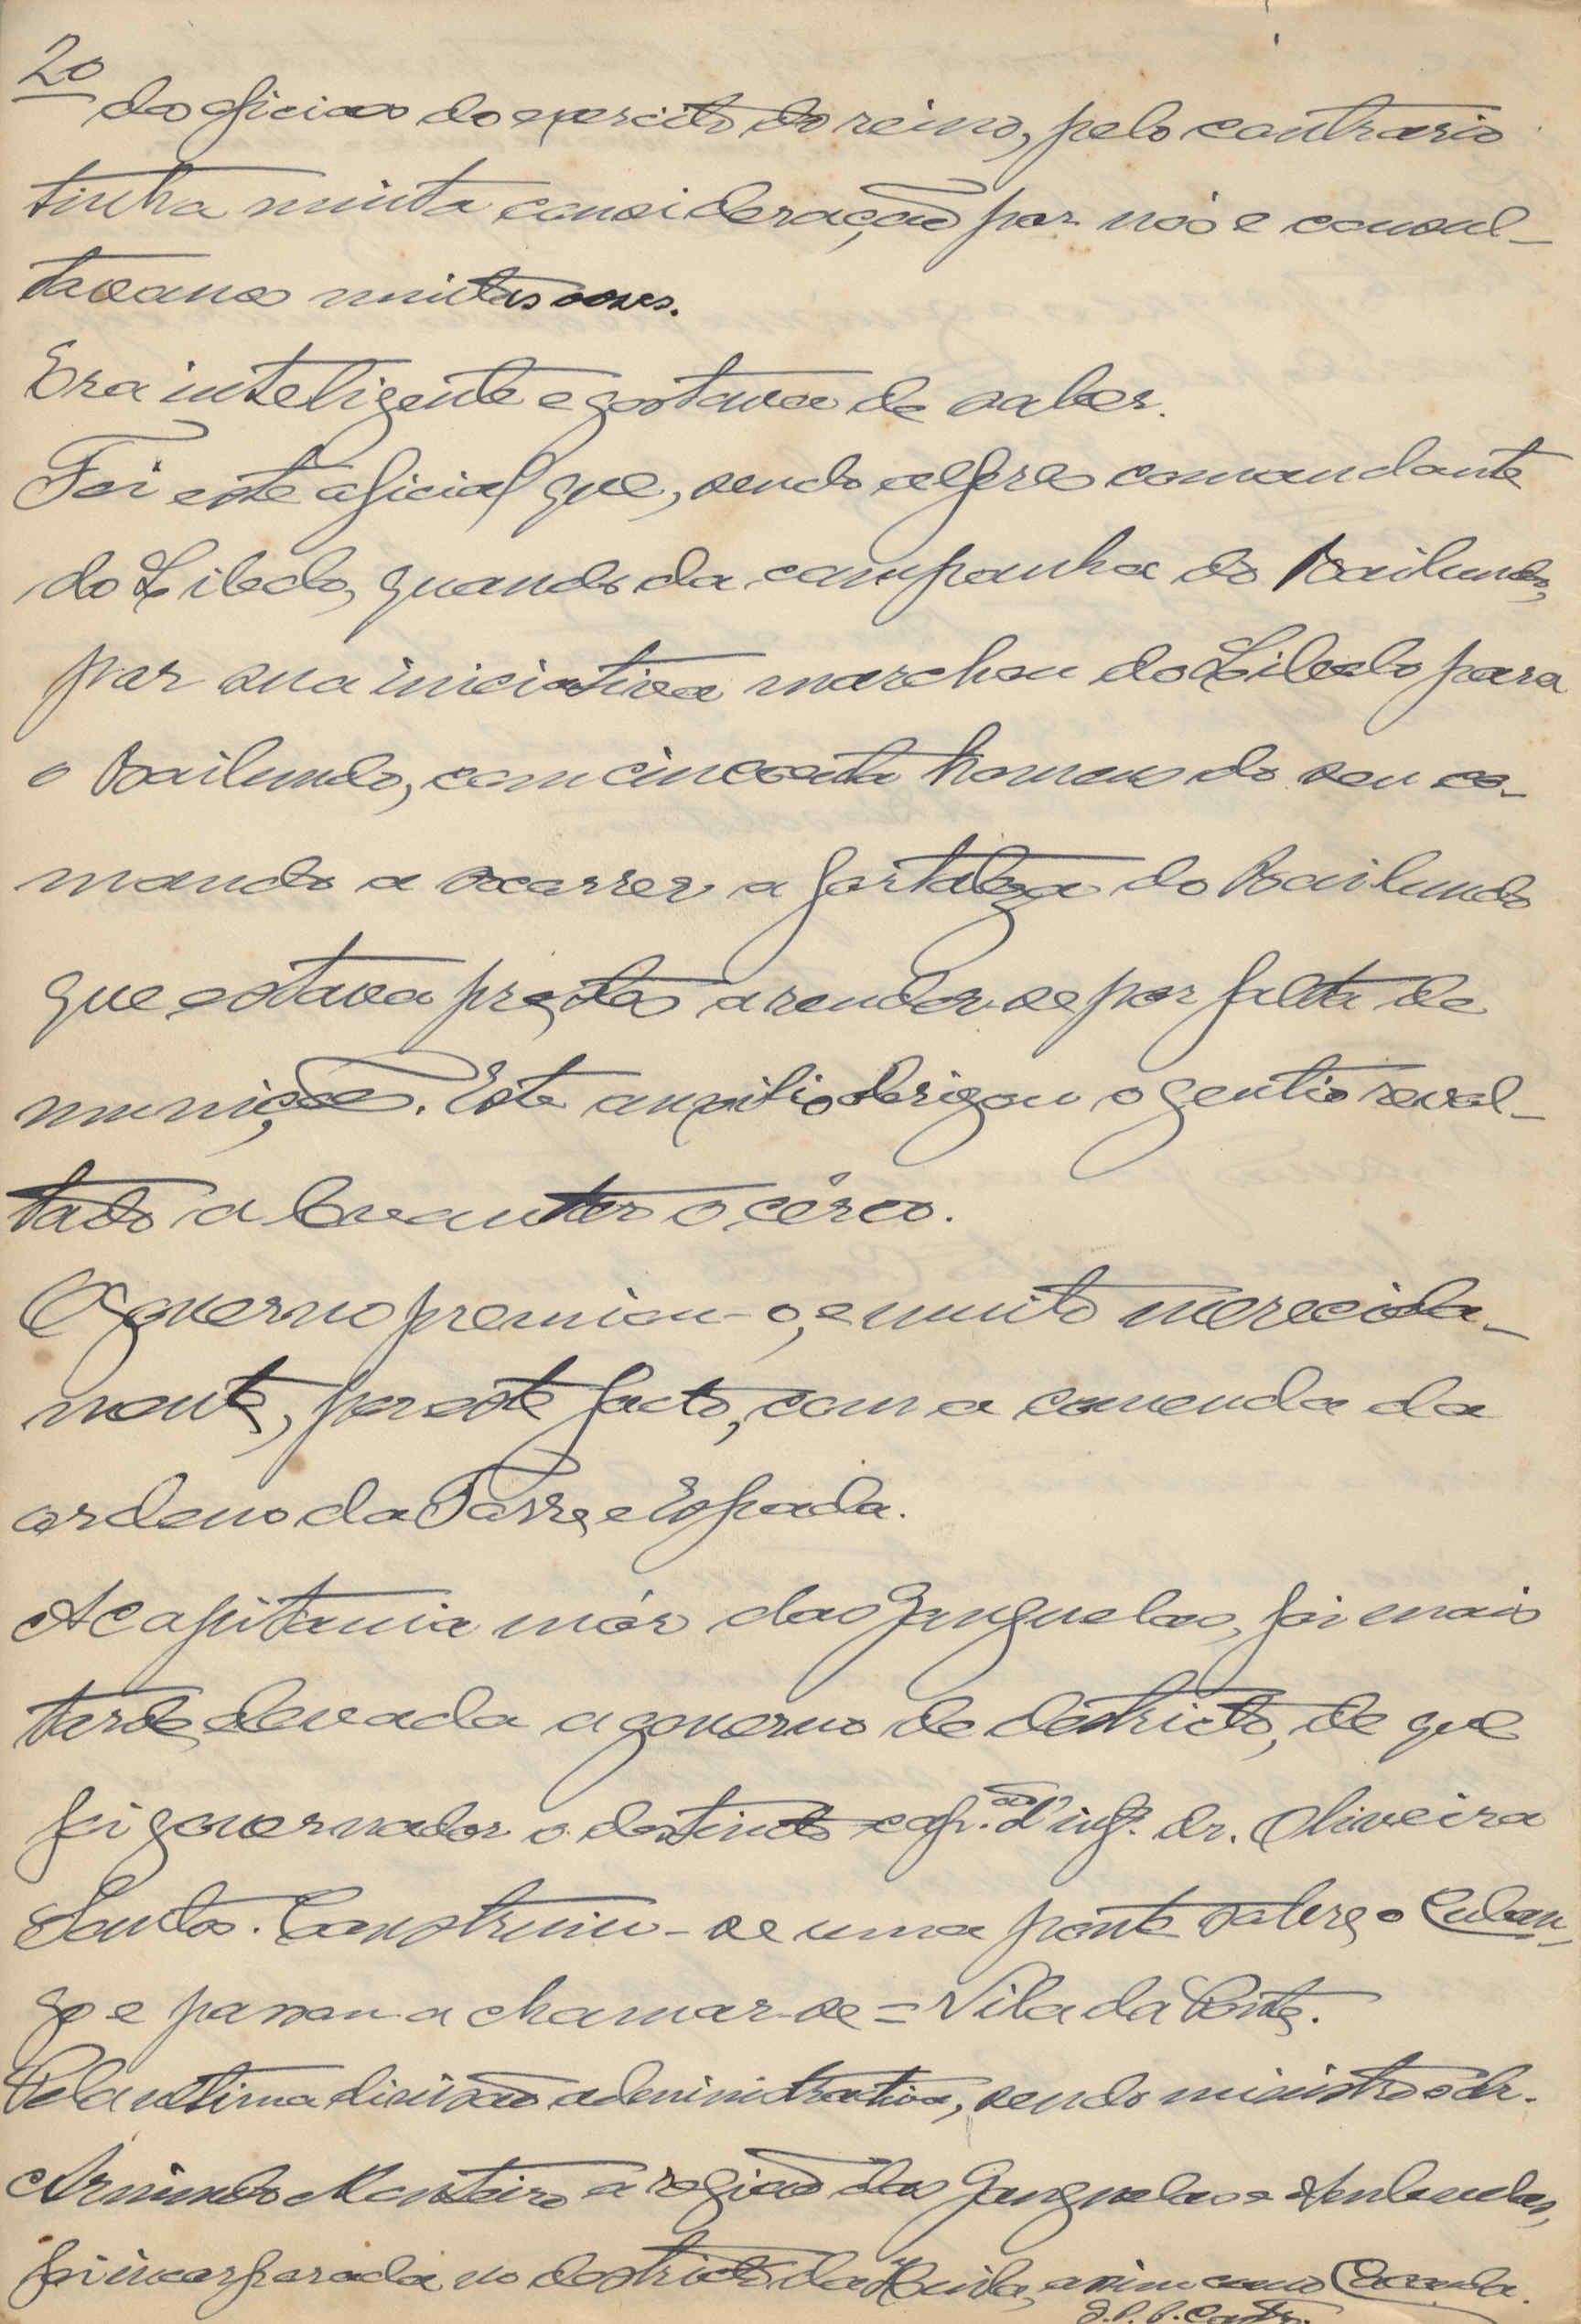 20
dos oficiaes do exercito do reino, pelo contrario
tinha muita consideração por nós e consul-
tavanos muitas vezes.
Era inteligente e gostava de saber.
Foi este oficial que, sendo alferes comandante
do Libolo, quando da campanha do Bailundo,
por sua iniciativa marchou do Libolo para
o Bailundo, com cincoenta homens do seu co-
mando a socorrer a fortaleza do Bailundo
que estava prestes a render-se por falta de
munições. Este auxilio obrigou o gentio revol-
tado a levantar o cêrco.
O governo premiou-o, e muito merecida-
mente, por este facto, com a comenda da
ordem da Torre e Espada.
A capitania mór dos Ganguelas, foi mais
tarde elevada a governo de destricto, de que
foi governador o destincto cap.ão d'inf.ª dr. Oliveira
Santos. Construiu-se uma ponte sobre o Cuban-
go e passou a chamar-se = Vila da Ponte.
Pela ultima divisão administrativa, sendo ministro o dr.
Armindo Monteiro a região dos Ganguelas e Ambuelas,
foi incorporada no destricto da Huila, assim como Caconda.